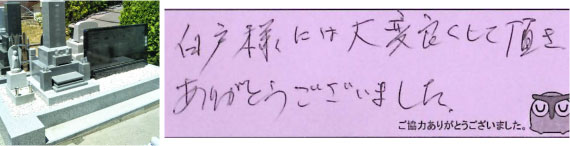 白戸様には大変良くして頂き
ありがとうございました。
ご協力ありがとうございました。